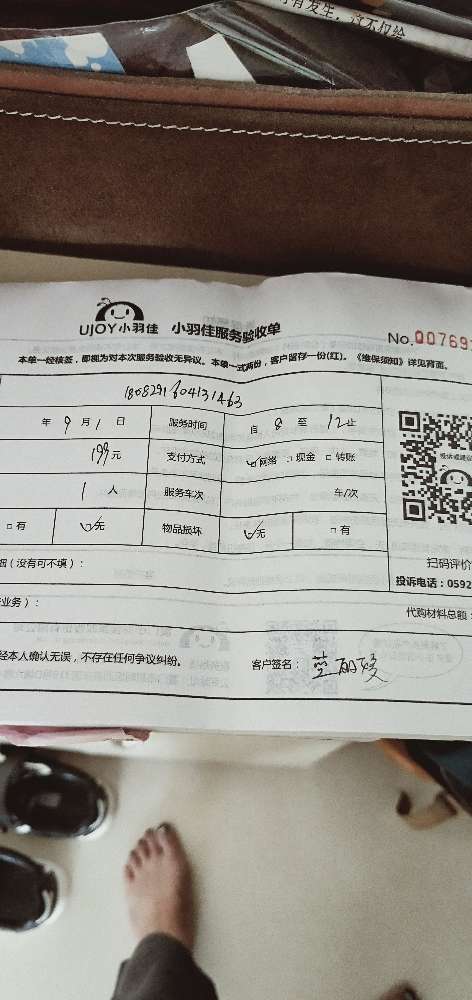 有发生，这不仅给
UJOY小羽佳 小羽佳服务验收单
No.00769
本单一经核签，即视为对本次服务验收无异议。本单一式两份，客户留存一份(红)。《维保须知》详见背面。
年 9 月 1 日 服务时间 自 8 至 12止
199元 支付方式 ☑网络 □现金 □转账
1 人 服务车次 车/次
□有 ☑无 物品损坏 ☑无 □有
投诉或建议
扫码评价
(没有可不填)：
投诉电话：0592
业务)：
代购材料总额：
经本人确认无误，不存在任何争议纠纷。 客户签名：